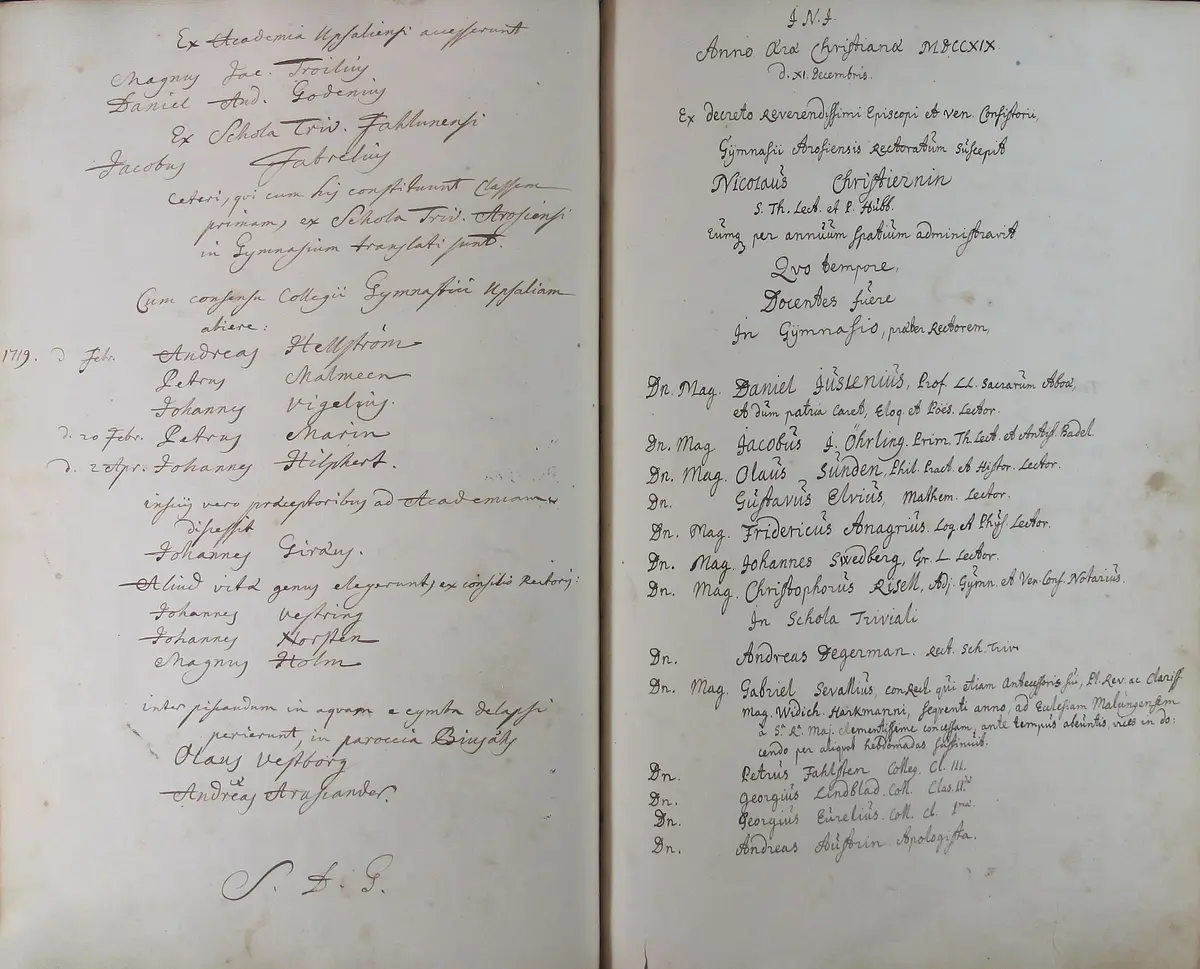 Ex Academia Upsaliensi accesserunt
Magnus Jac. Troilius
Daniel And. Godenius
Ex Schola Triv. Fahlunensi
Jacobus Fabrelius
Ceteri, qvi cum his constituunt Classem
primam, ex Schola Triv. Arosiensi
in Gymnasium translati sunt.
Cum consensu Collegii Gymnastici Upsaliam
abiere:
1719. d Febr. Andreas Hellström
Petrus Malmeen
Johannes Vigelius.
d. 20 Febr. Petrus Marin
d. 2 Apr. Johannes Hilphert.
insciis vero præceptoribus ad Academiam
discessit
Johannes Giræus.
Aliud vitæ genus elegerunt, ex consilio Rectoris:
Johannes Vestring
Johannes Norsten
Magnus Holm
inter piscandum in aqvam e cymba delapsi
perierunt, in paroccia
Olaus Vestborg
Andreas Arusiander.
S. D. G.
I. N. J.
Anno Æræ Christianæ MDCCXIX
d. XI. Decembris.
Ex decreto Reverendissimi Episcopi et Ven. Consistorii,
Gymnasii Arosiensis Rectoratum suscepit
Nicolaus Christiernin
S. Th. Lect. et P. Hubb.
Eumq per annuum spatium administravit
Qvo tempore,
Docentes fuere
In Gymnasio, præter Rectorem,
Dn. Mag. Daniel Juslenius, Prof. LL. Sacrarum Aboæ,
et dum patria caret, Eloq. et Poës. Lector.
Dn. Mag Jacobus J. Öhrling. Prim. Th. Lect. et Antist. Badel.
Dn. Mag. Olaus Sunden, Phil. Pract. et Histor. Lector.
Dn. Gustavus Elvius, Mathem. Lector.
Dn. Mag. Fridericus Anagrius. Log. et Phys. Lector.
Dn. Mag. Johannes Swedberg, Gr. L. Lector.
Dn. Mag. Christophorus Risell, Adj. Gymn. et Ven. Cons. Notarius.
In Schola Triviali
Dn. Andreas Degerman. Rect. Sch. Triv.
Dn. Mag. Gabriel Sevallius, conRect. qui etiam Antecessoris sui, Pl. Rev. ac Clariss
Mag. Widich. Harkmanni, seqventi anno, ad Eclesiam Malungensem
a S. R. Maj. clementissime concessam, ante tempus abeuntis, vices in do:
cendo per aliqvot hebdomadas sustinuit.
Dn. Petrus Fahlsten Colleg. Cl. III.
Dn. Georgius Lindblad. Coll. Clas. II.
Dn. Georgius Eurelius. Coll. Cl. I.
Dn. Andreas Austrin Apologista.